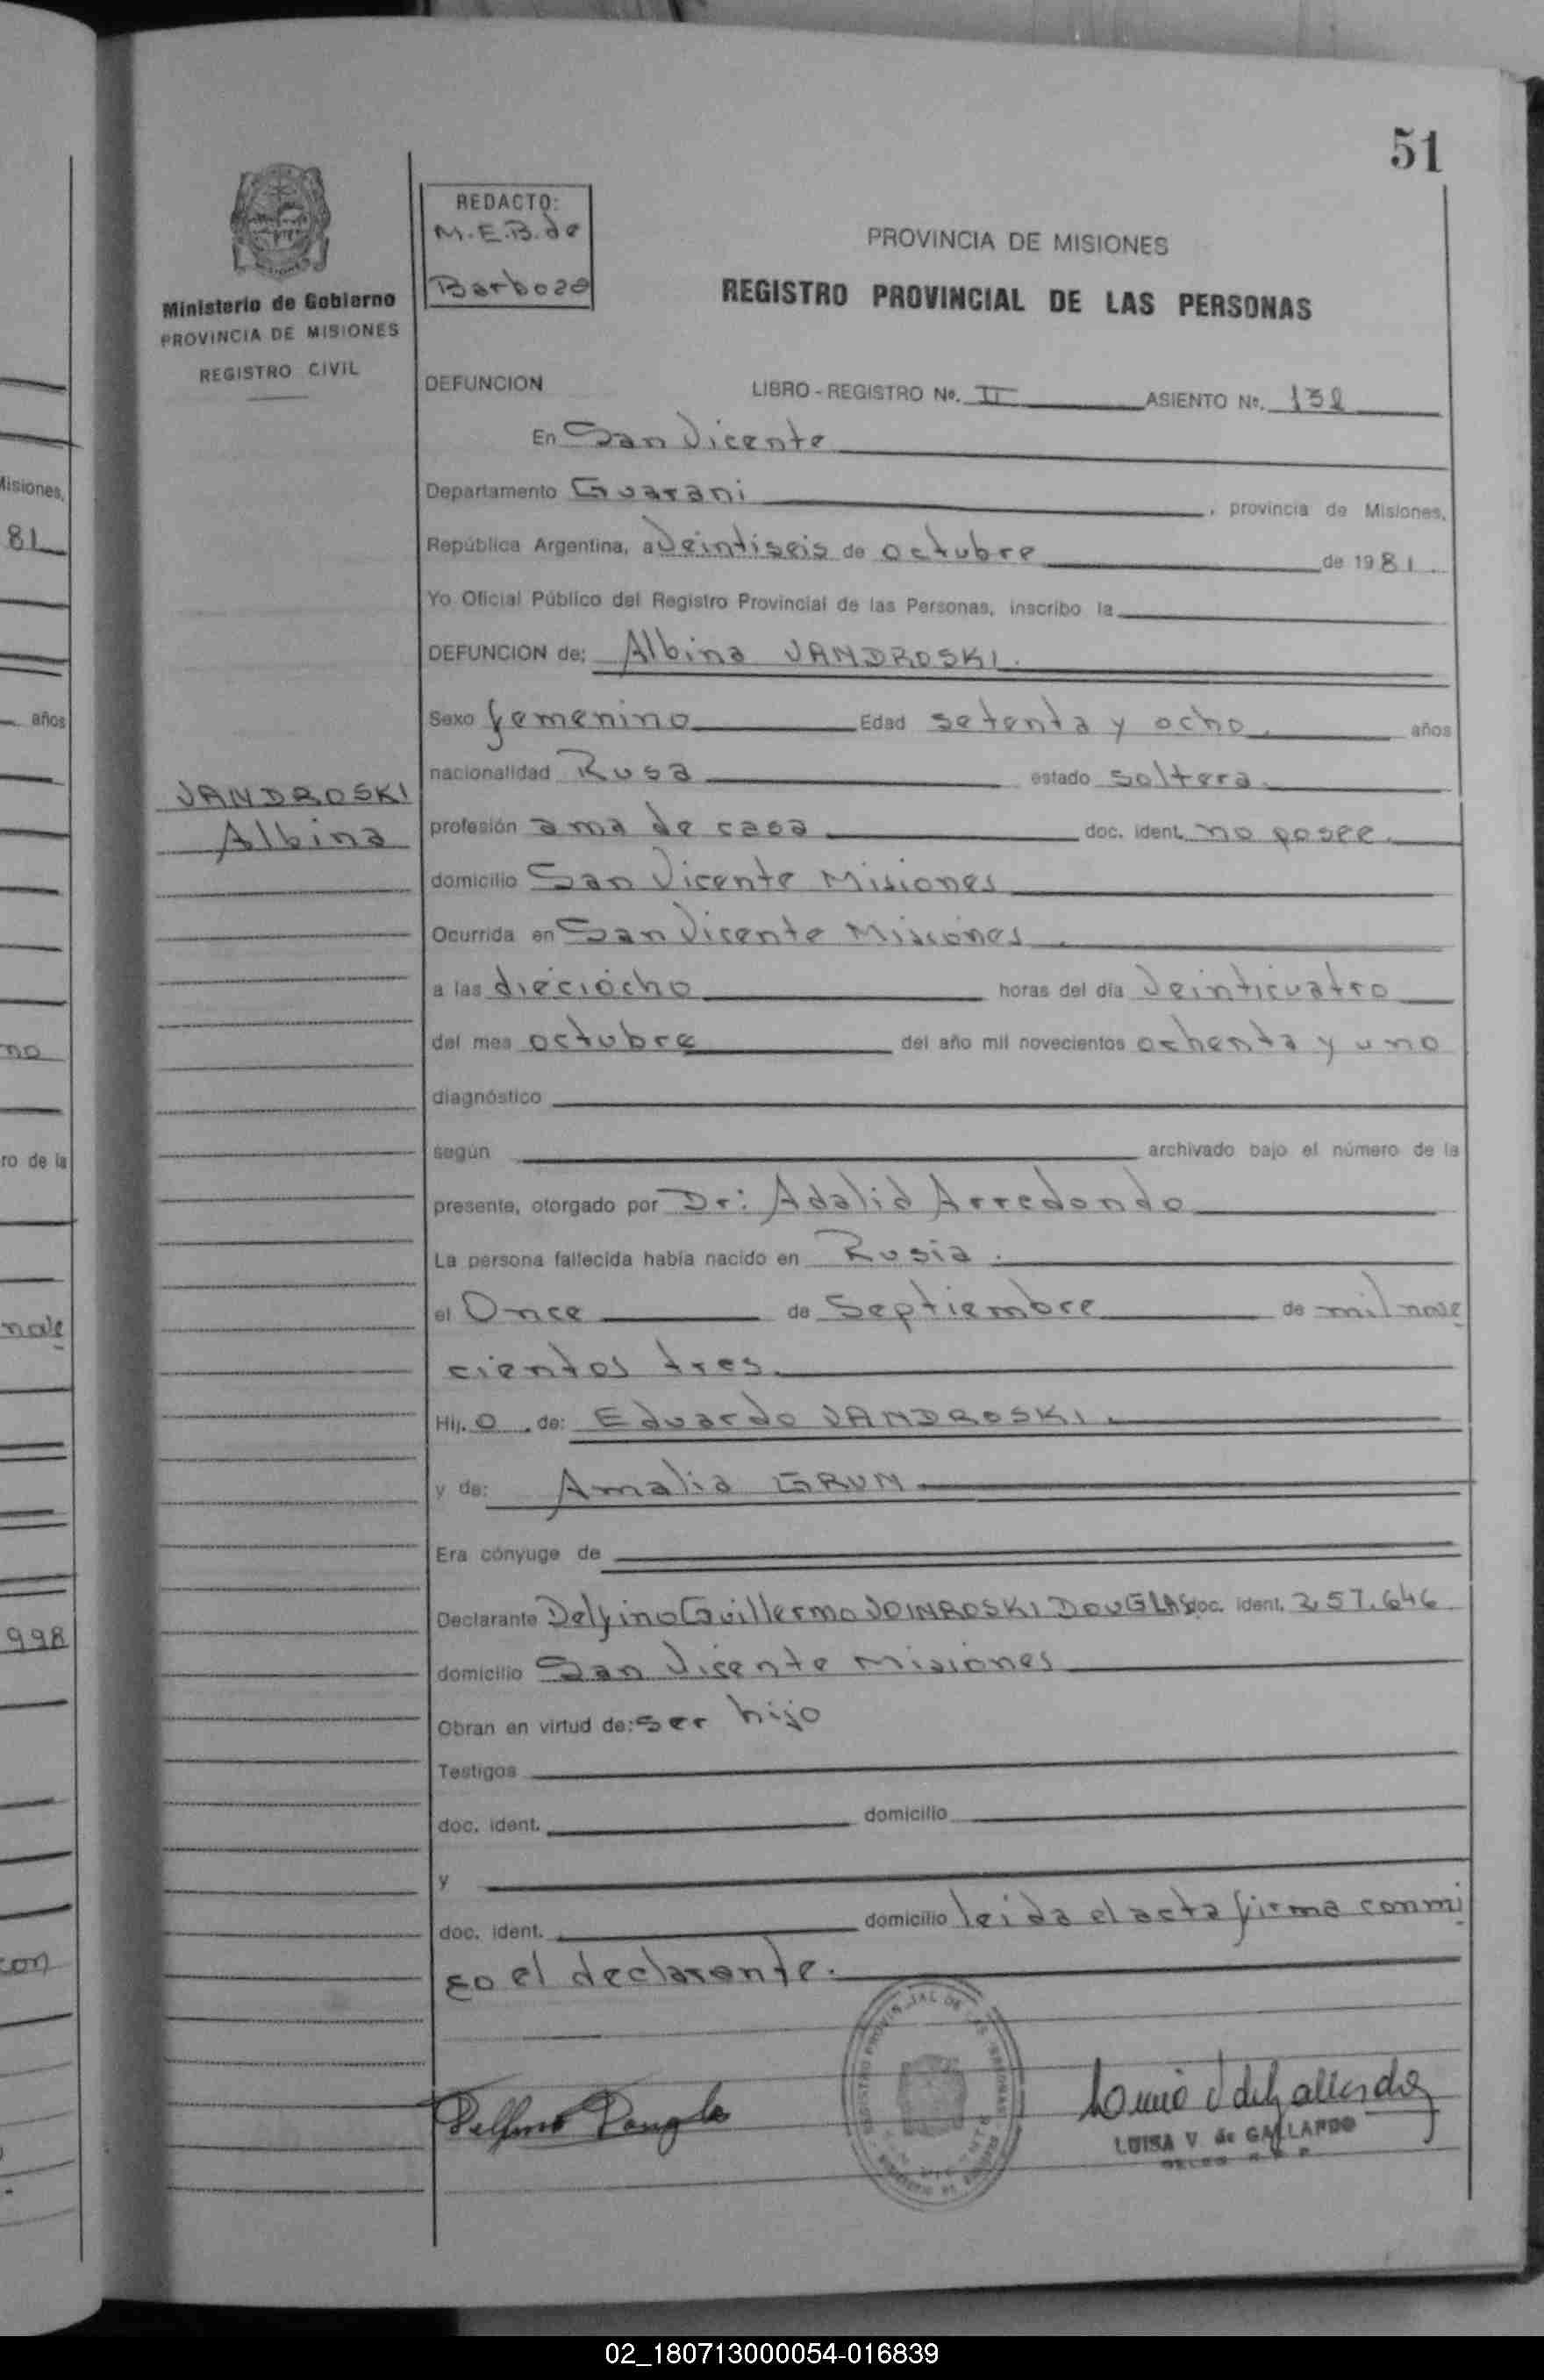 51
REDACTO:
M.E.B. de
Barboza
Ministerio de Gobierno
PROVINCIA DE MISIONES
REGISTRO CIVIL
PROVINCIA DE MISIONES
REGISTRO PROVINCIAL DE LAS PERSONAS
DEFUNCION LIBRO - REGISTRO No. II ASIENTO No. 132
En San Vicente
Departamento Guarani , provincia de Misiones,
República Argentina, a Veintiseis de octubre de 1981.
Yo Oficial Público del Registro Provincial de las Personas, inscribo la
DEFUNCION de: Albina VANDROSKI.
Sexo femenino Edad setenta y ocho. años
nacionalidad Rusa estado soltera.
VANDROSKI
Albina
profesión ama de casa doc. ident. no posee.
domicilio San Vicente Misiones
Ocurrida en San Vicente Misiones.
a las dieciocho horas del día Veinticuatro
del mes octubre del año mil novecientos ochenta y uno
diagnóstico
según archivado bajo el número de la
presente, otorgado por Dr: Adalid Arredondo
La persona fallecida había nacido en Rusia.
el Once de Septiembre de mil nove
cientos tres.
Hij. o . de: Eduardo VANDROSKI.
y de: Amalia GRUN
Era cónyuge de
Declarante Delfino Guillermo DOUGLAS doc. ident. 257.646
domicilio San Vicente Misiones
Obran en virtud de: ser hijo
Testigos
doc. ident. domicilio
y
doc. ident. domicilio leida el acta firma conmi
go el declarante.
LUISA V. de GALLARDO
Misiones,
81
años
no
ro de la
nove
998
con
02_180713000054-016839